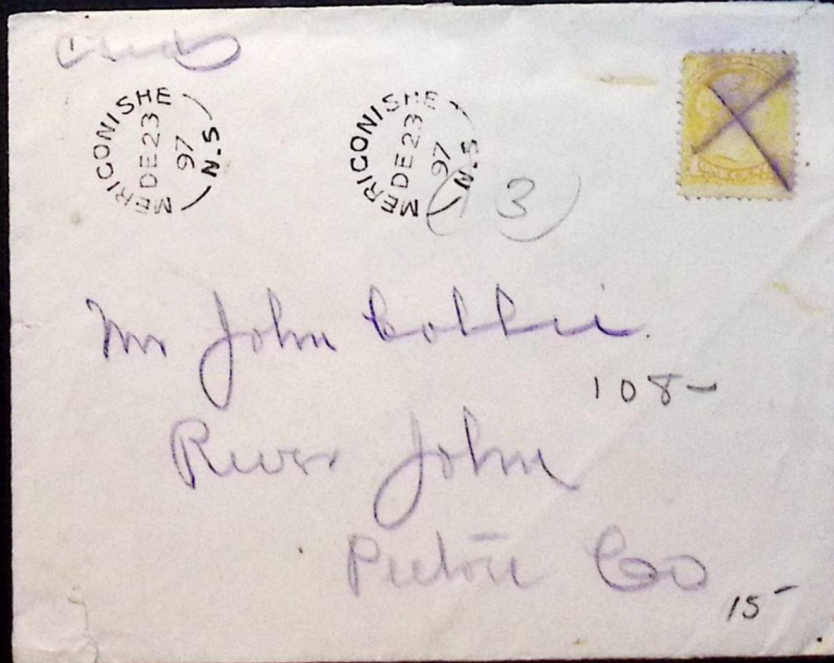 MERICONISHE N.S
DE 23
97
MERICONISHE N.S
DE 23
97
(3)
Mr John Collie
108-
River John
Pictou Co
15-